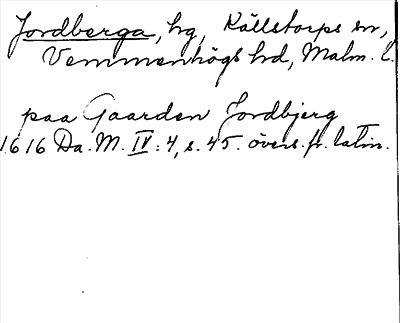 Jordberga, hg, Källstorps sn,
Vemmenhögs hd, Malm. l.
paa Gaarden Jordbjerg
1616 Da. M. IV: 4, s. 45. övers. fr. latin.